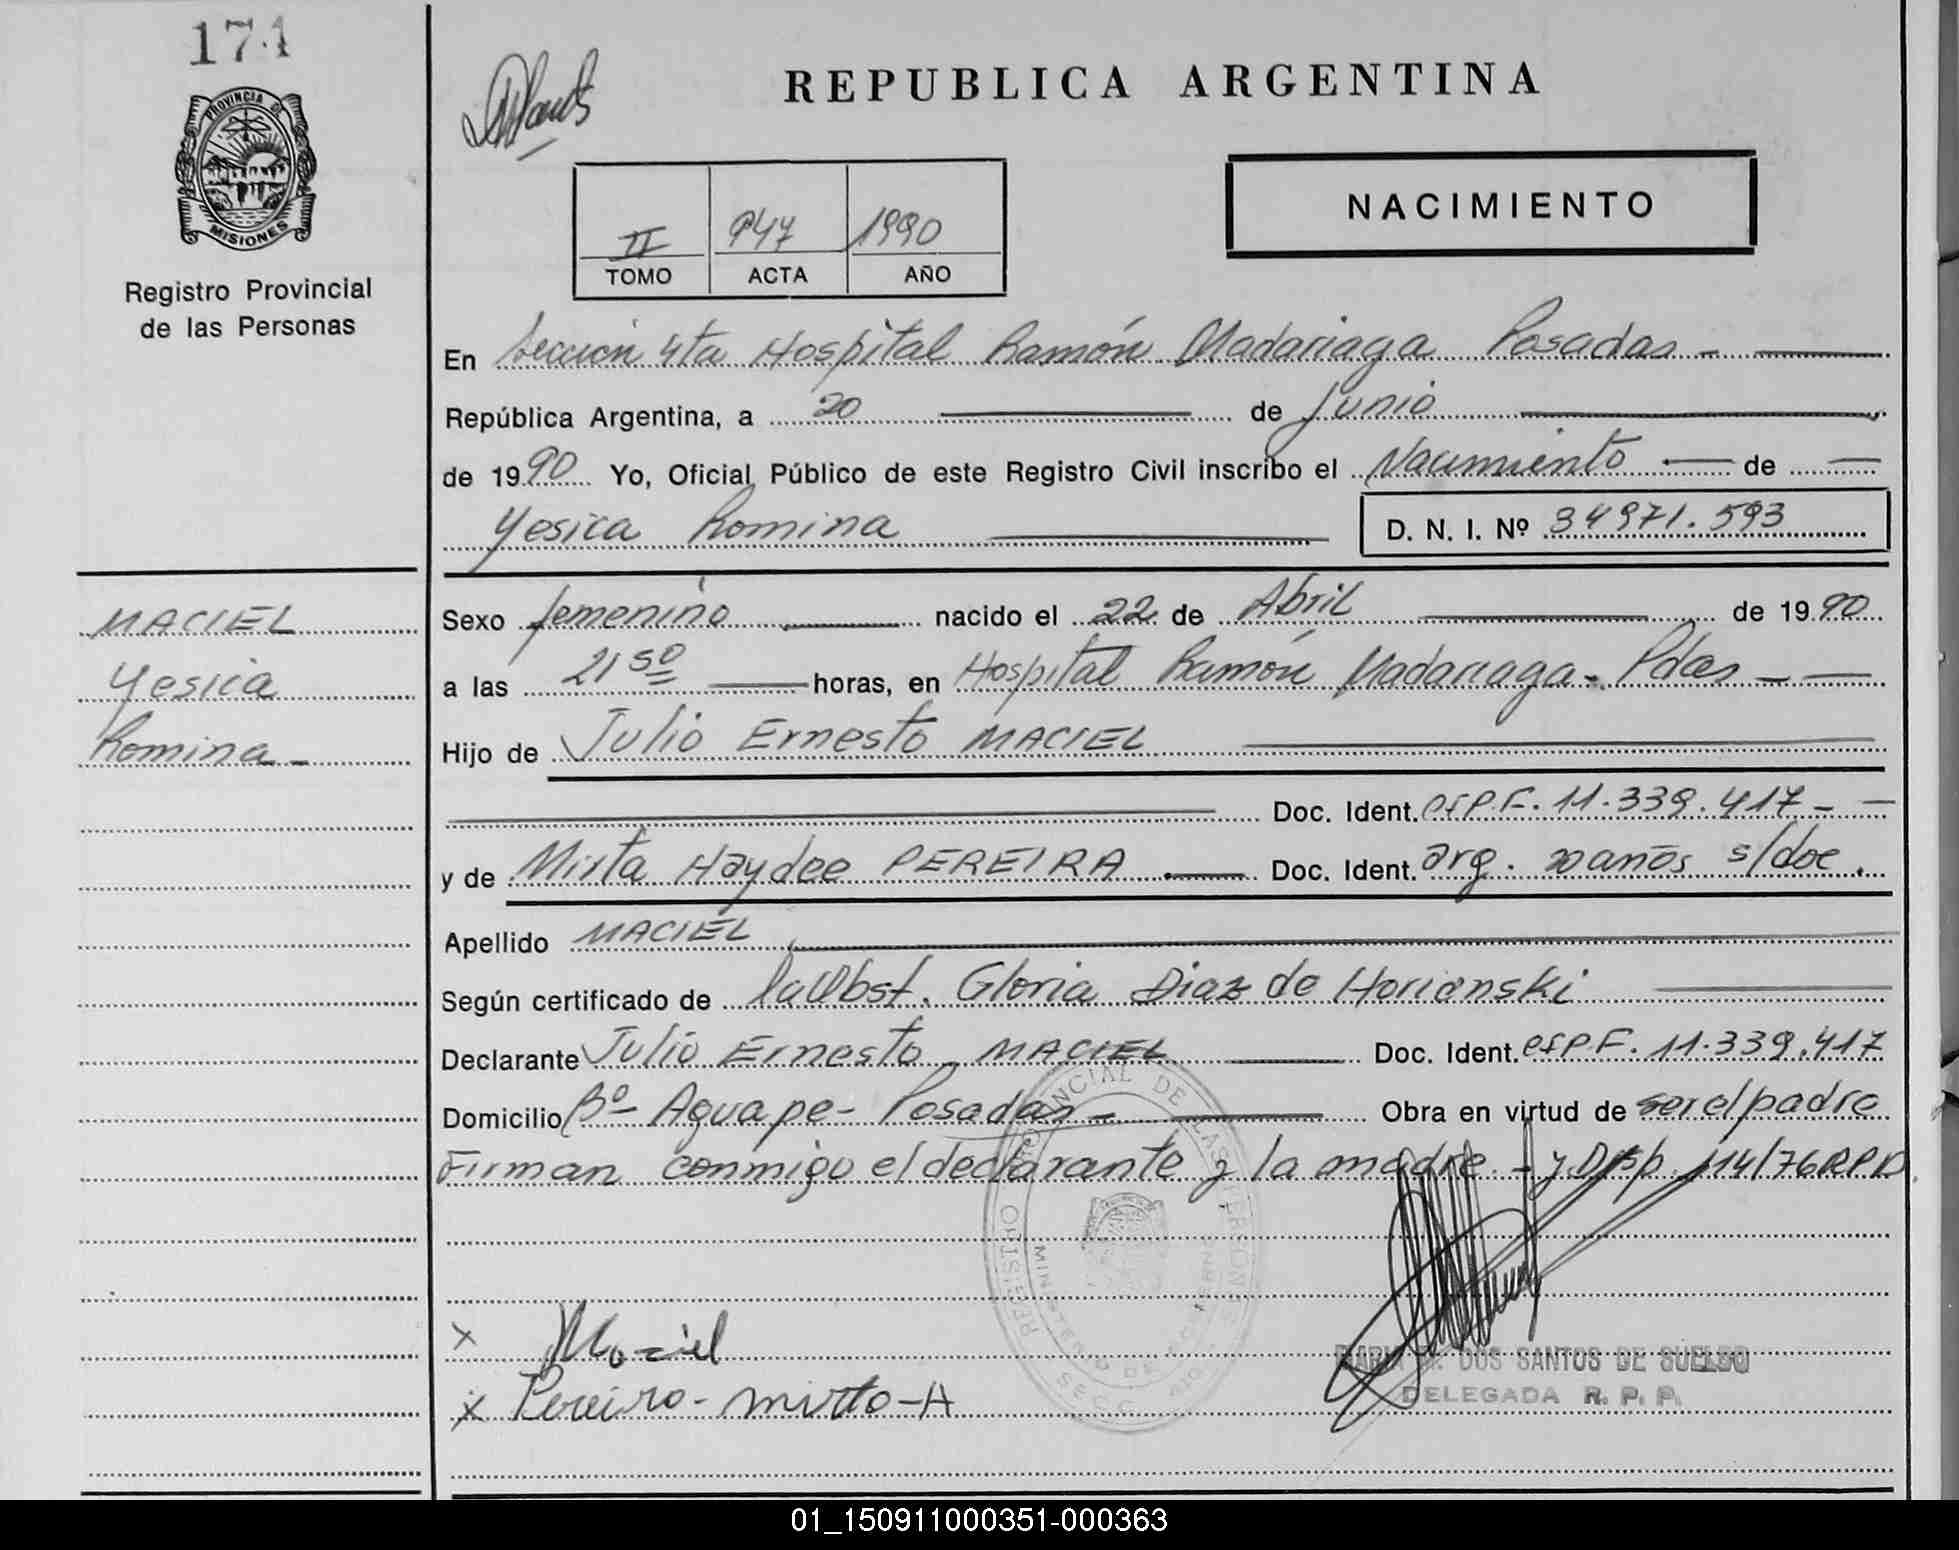 174
PROVINCIA DE
MISIONES
Registro Provincial
de las Personas
REPUBLICA ARGENTINA
NACIMIENTO
II 947 1990
TOMO ACTA AÑO
En Sección 4ta Hospital Ramón Madariaga Posadas -
República Argentina, a 20 de Junio
de 1990 Yo, Oficial Público de este Registro Civil inscribo el Nacimiento de
Yesica Romina D. N. I. Nº 34971.593
MACIEL
Yesica
Romina -
Sexo femenino nacido el 22 de Abril de 1990
a las 21 50 horas, en Hospital Ramón Madariaga - Pdas -
Hijo de Julio Ernesto MACIEL
Doc. Ident. 11.339.417 -
y de Mirta Haydee PEREIRA Doc. Ident. arg. 20 años s/doc.
Apellido MACIEL
Según certificado de la Obst. Gloria Diaz de Horianski
Declarante Julio Ernesto MACIEL Doc. Ident. 11.339.417
Domicilio Bº - Aguape - Posadas - Obra en virtud de ser el padre
Firman conmigo el declarante y la madre - y Disp. 114/76 R.P.P
REGISTRO PROVINCIAL DE LAS PERSONAS
MINISTERIO DE GOBIERNO
x Maciel
x Pereira - mirta - H
MARIA DOS SANTOS DE SUELDO
DELEGADA R. P. P.
01_150911000351-000363